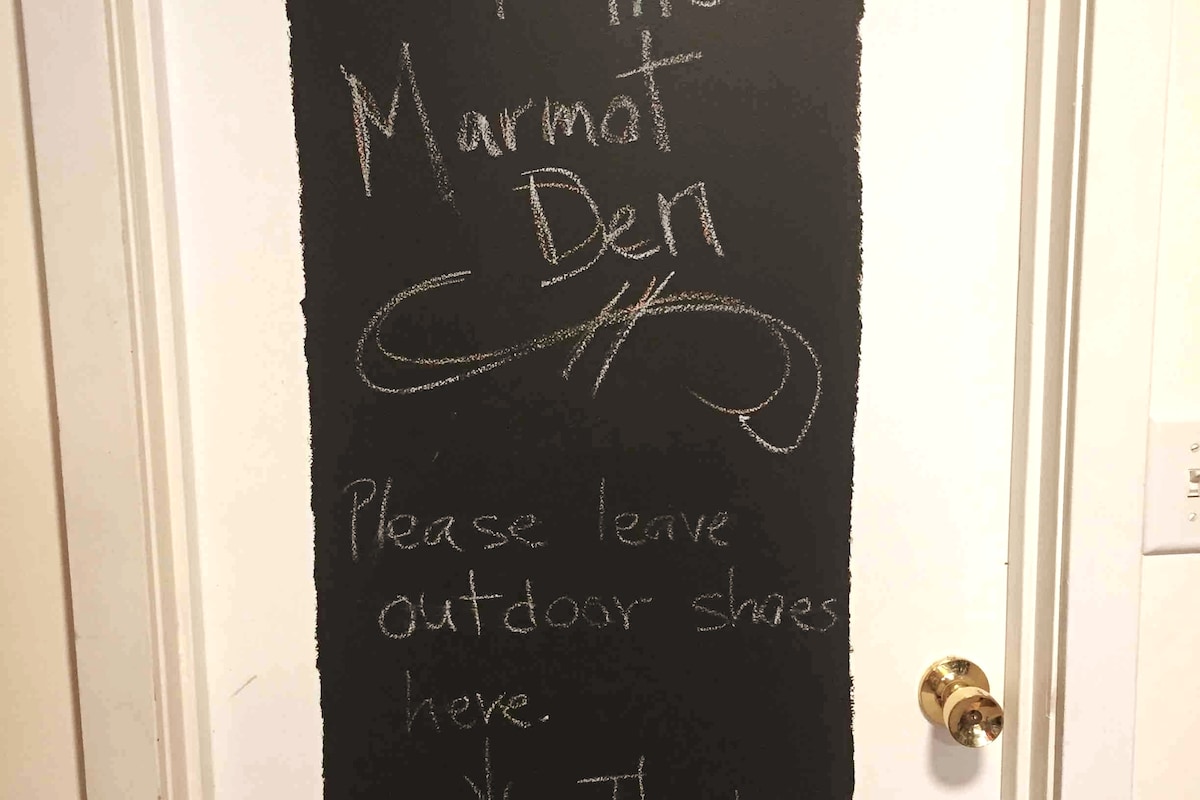 Marmot
Den
Please leave
outdoor shoes
here.